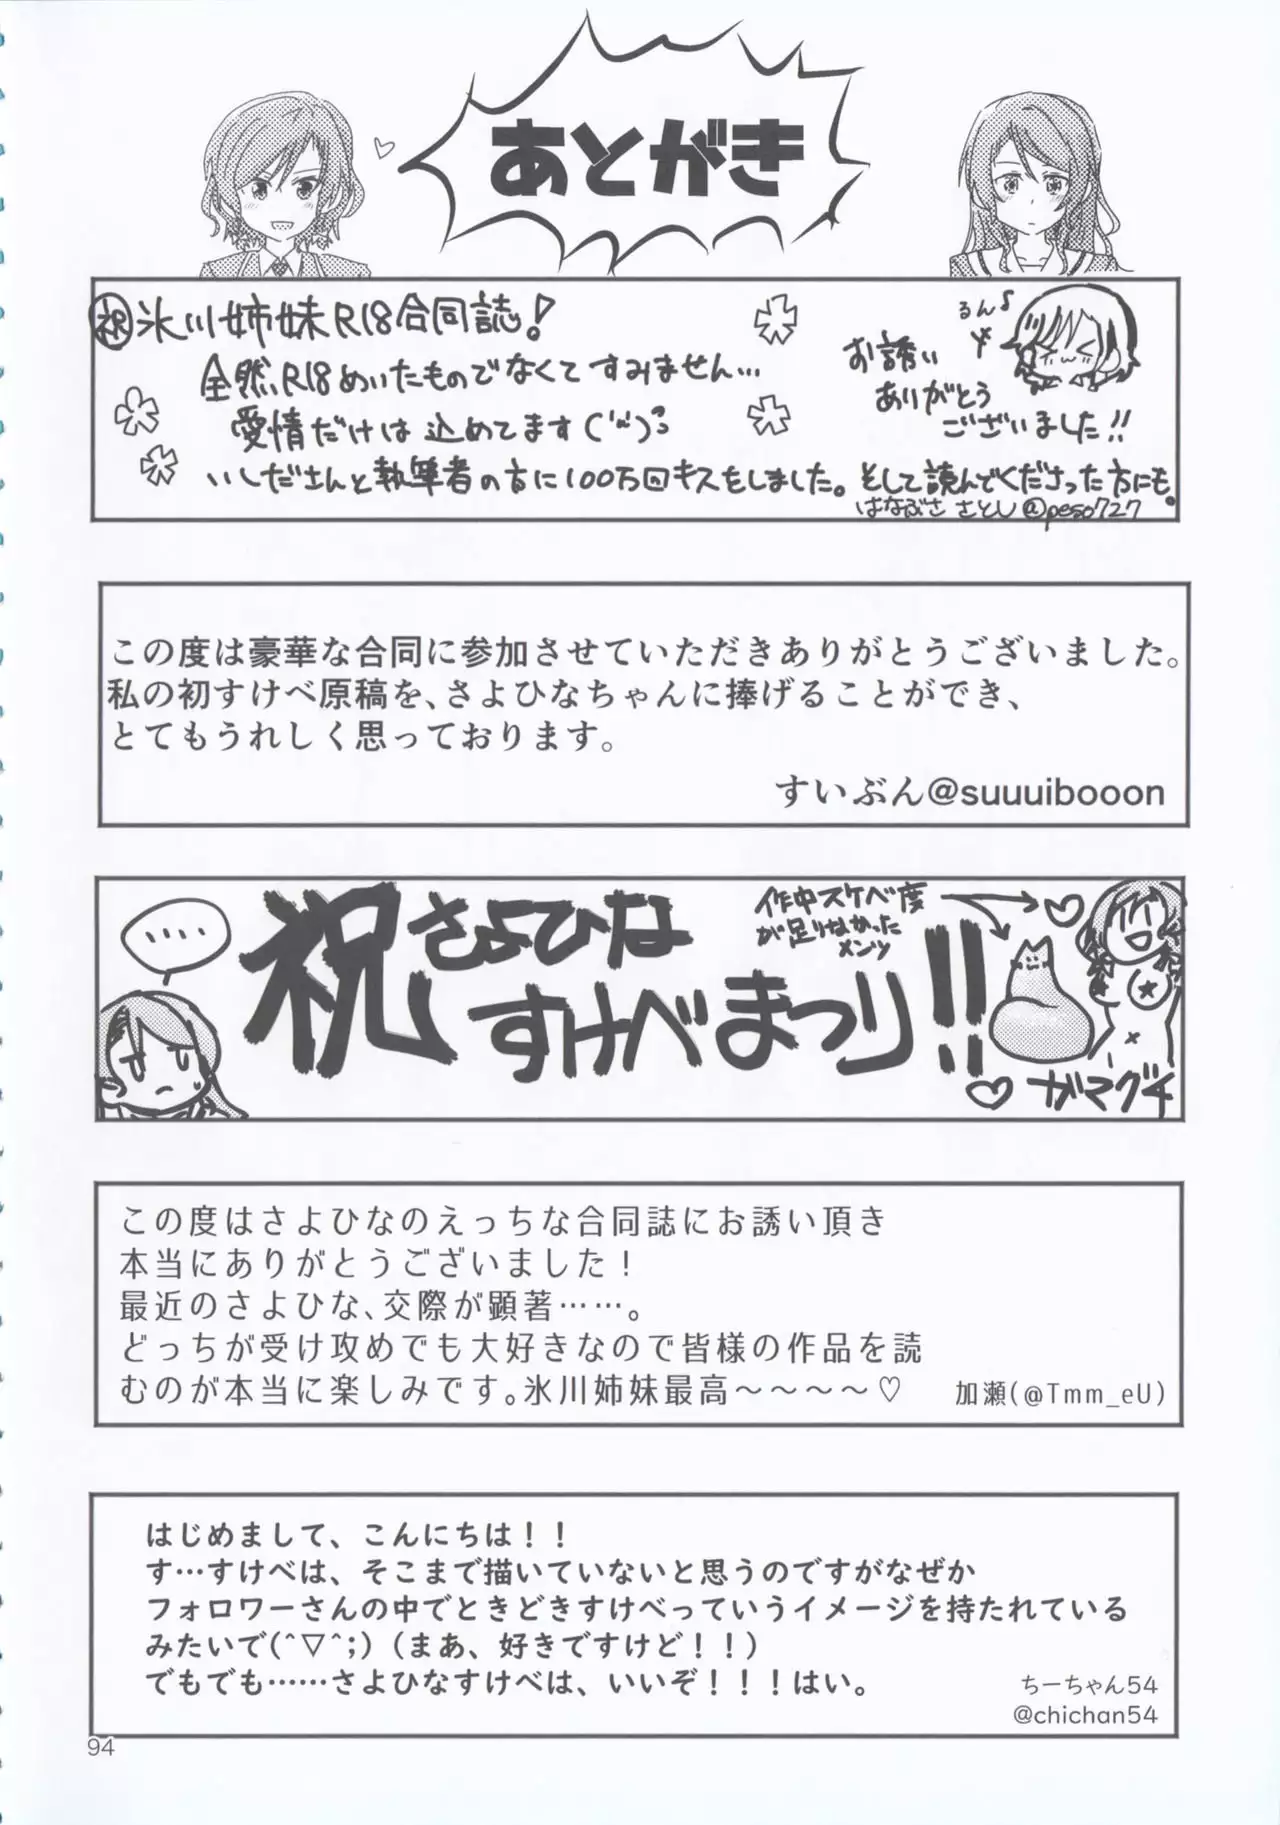 あとがき
祝 氷川姉妹R18合同誌!
全然R18めいたものでなくてすみません…
愛情だけは込めてます
いしださんと執筆者の方に100万回キスをしました。そして読んでくださった方にも。
るんっ♪
お誘い
ありがとう
ございました!!
はなぶささとし@peso727
この度は豪華な合同に参加させていただきありがとうございました。
私の初すけべ原稿を、さよひなちゃんに捧げることができ、
とてもうれしく思っております。
すいぶん@suuuibooon
‥‥
祝さよひな
すけべまつり!!
作中スケベ度
が足りなかった
メンツ
ガマグチ
この度はさよひなのえっちな合同誌にお誘い頂き
本当にありがとうございました!
最近のさよひな、交際が顕著……。
どっちが受け攻めでも大好きなので皆様の作品を読
むのが本当に楽しみです。氷川姉妹最高～～～～♡
加瀬(@Tmm_eU)
はじめまして、こんにちは！！
す…すけべは、そこまで描いていないと思うのですがなぜか
フォロワーさんの中でときどきすけべっていうイメージを持たれている
みたいで(^▽^;)（まあ、好きですけど！！）
でもでも……さよひなすけべは、いいぞ！！！はい。
ちーちゃん54
@chichan54
94